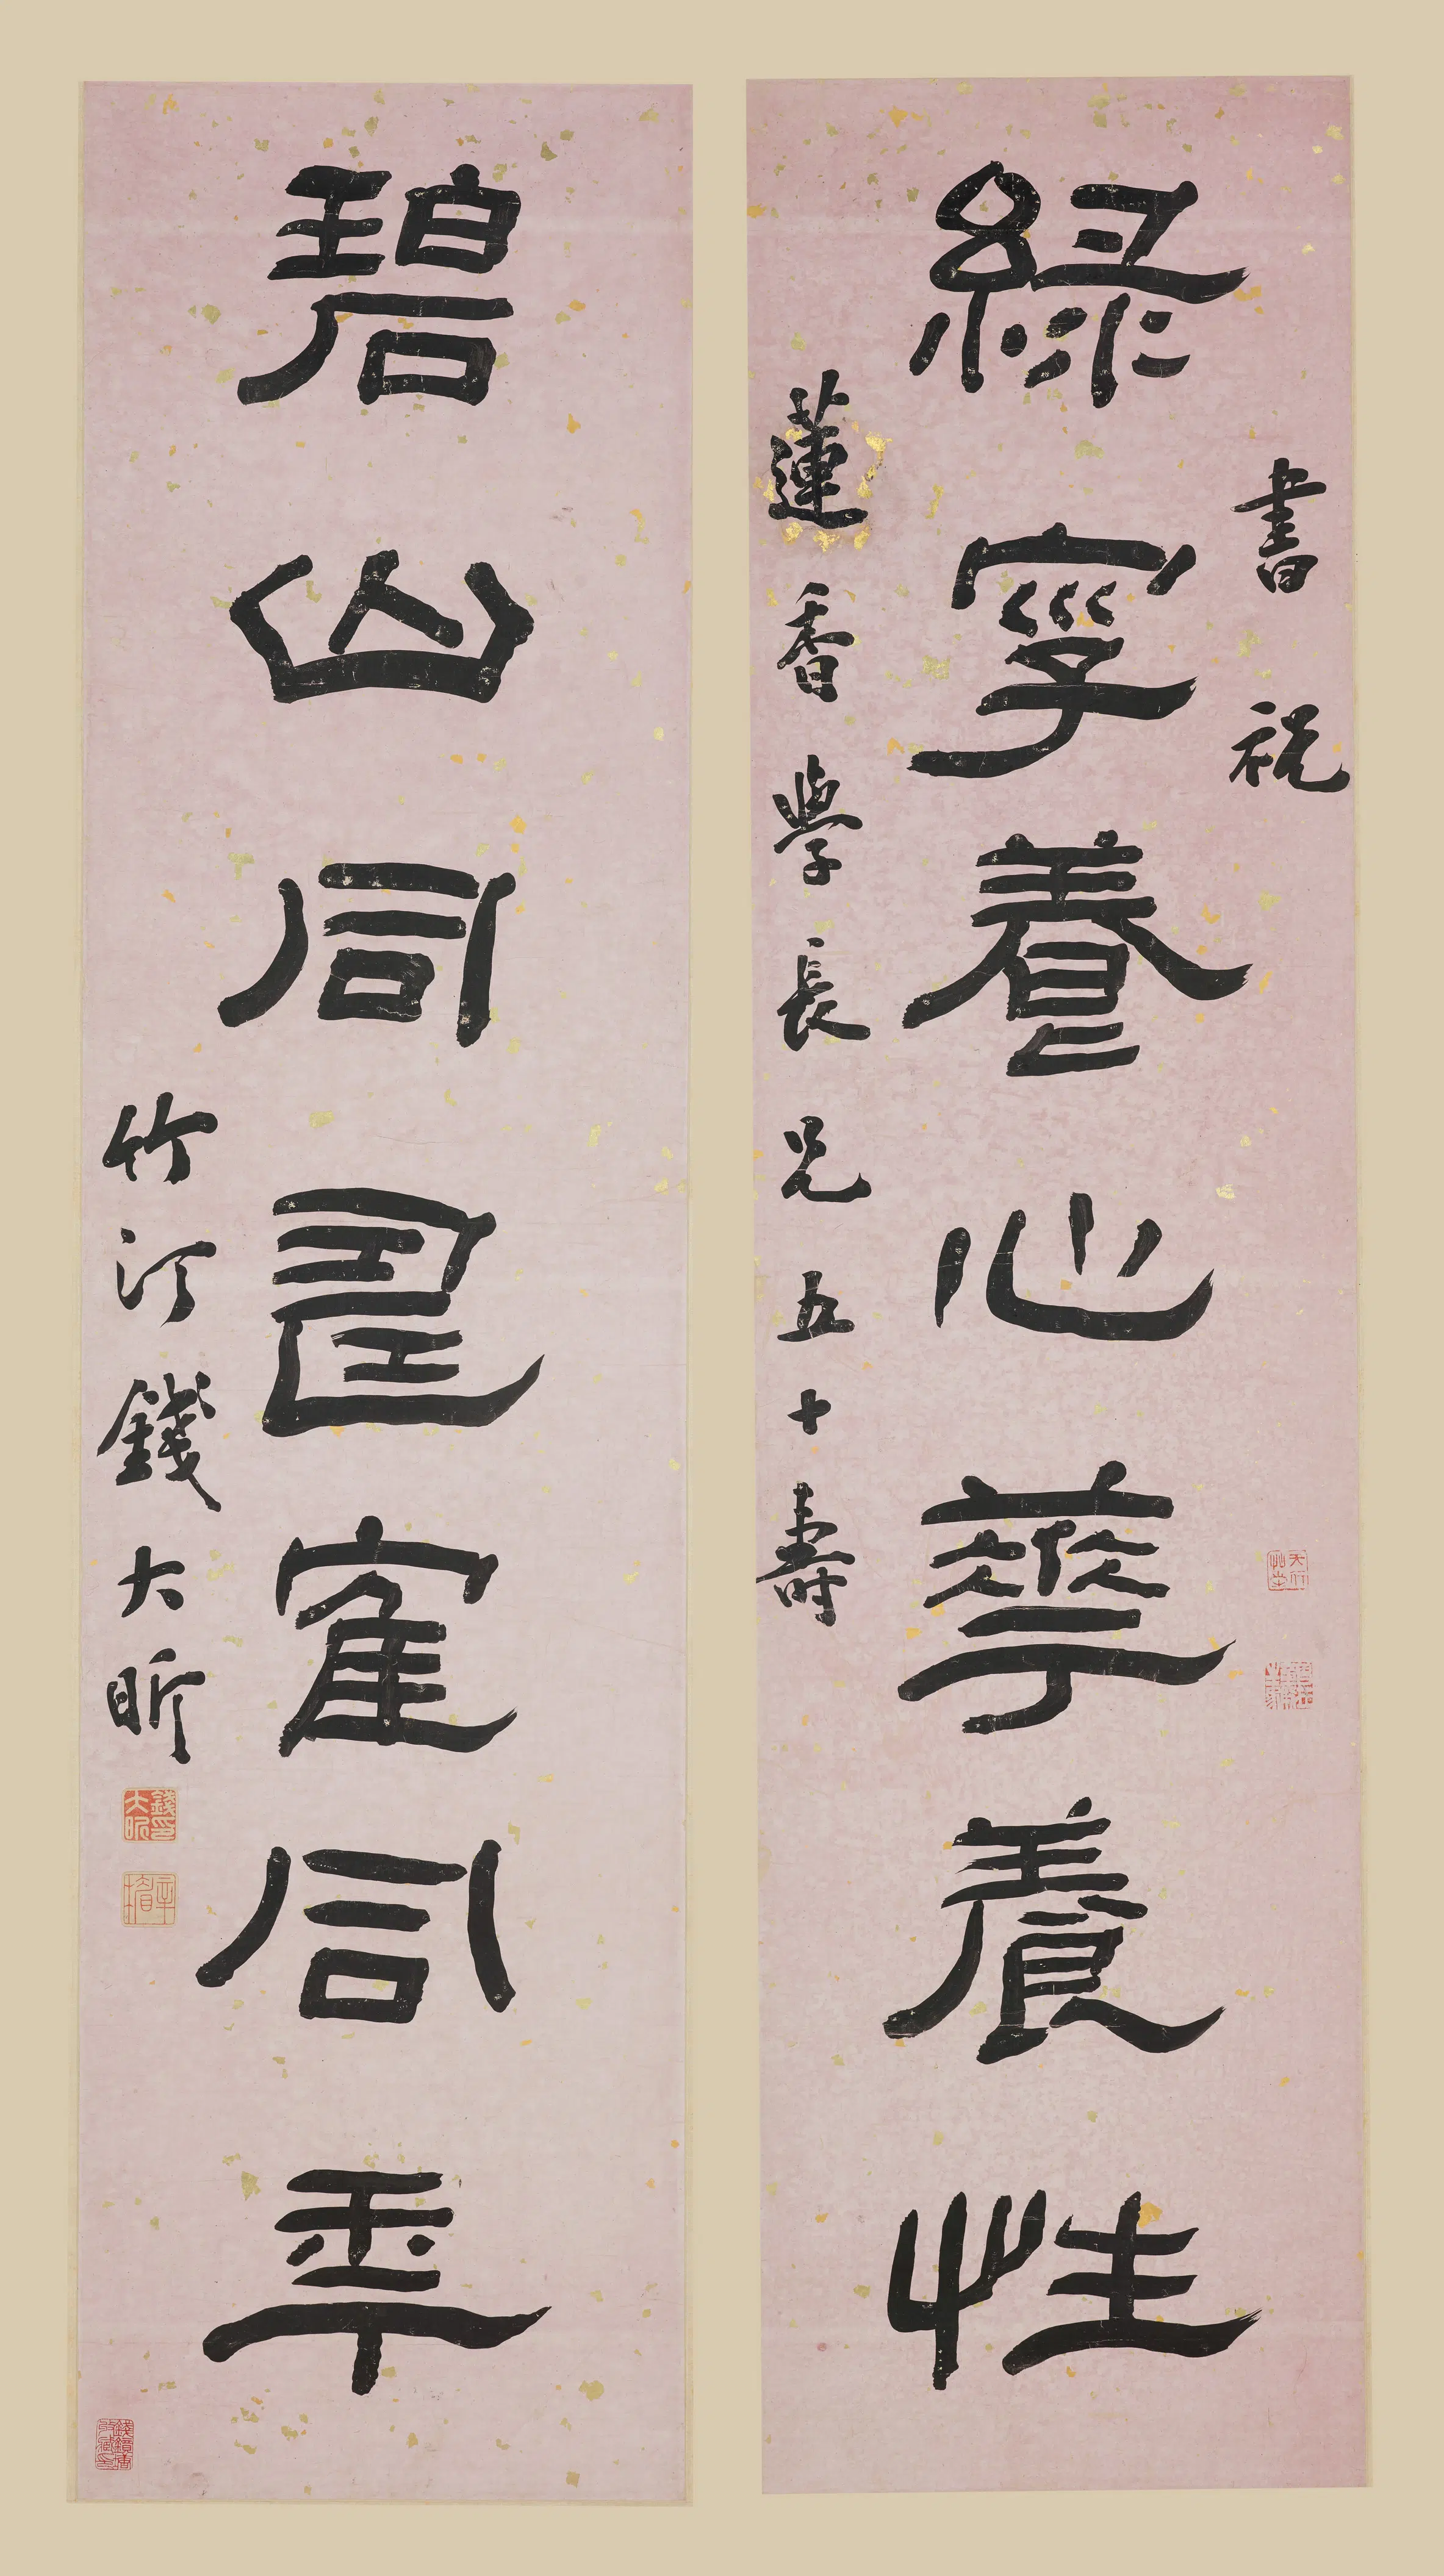 綠字養心華養性
書祝
蓮香學長兄五十壽
碧山同壽隺同年
竹汀錢大昕
錢大昕印
辛楣